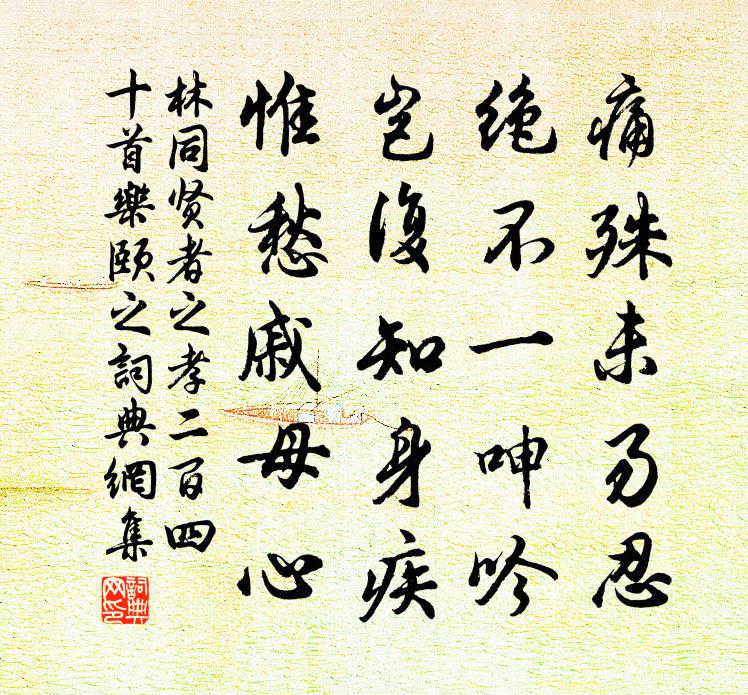 痛殊未易忍
绝不一呻吟
岂復知身疾
惟愁戚母心
林同贤者之孝二百四
十首樂颐之詞典網集
詞典网印